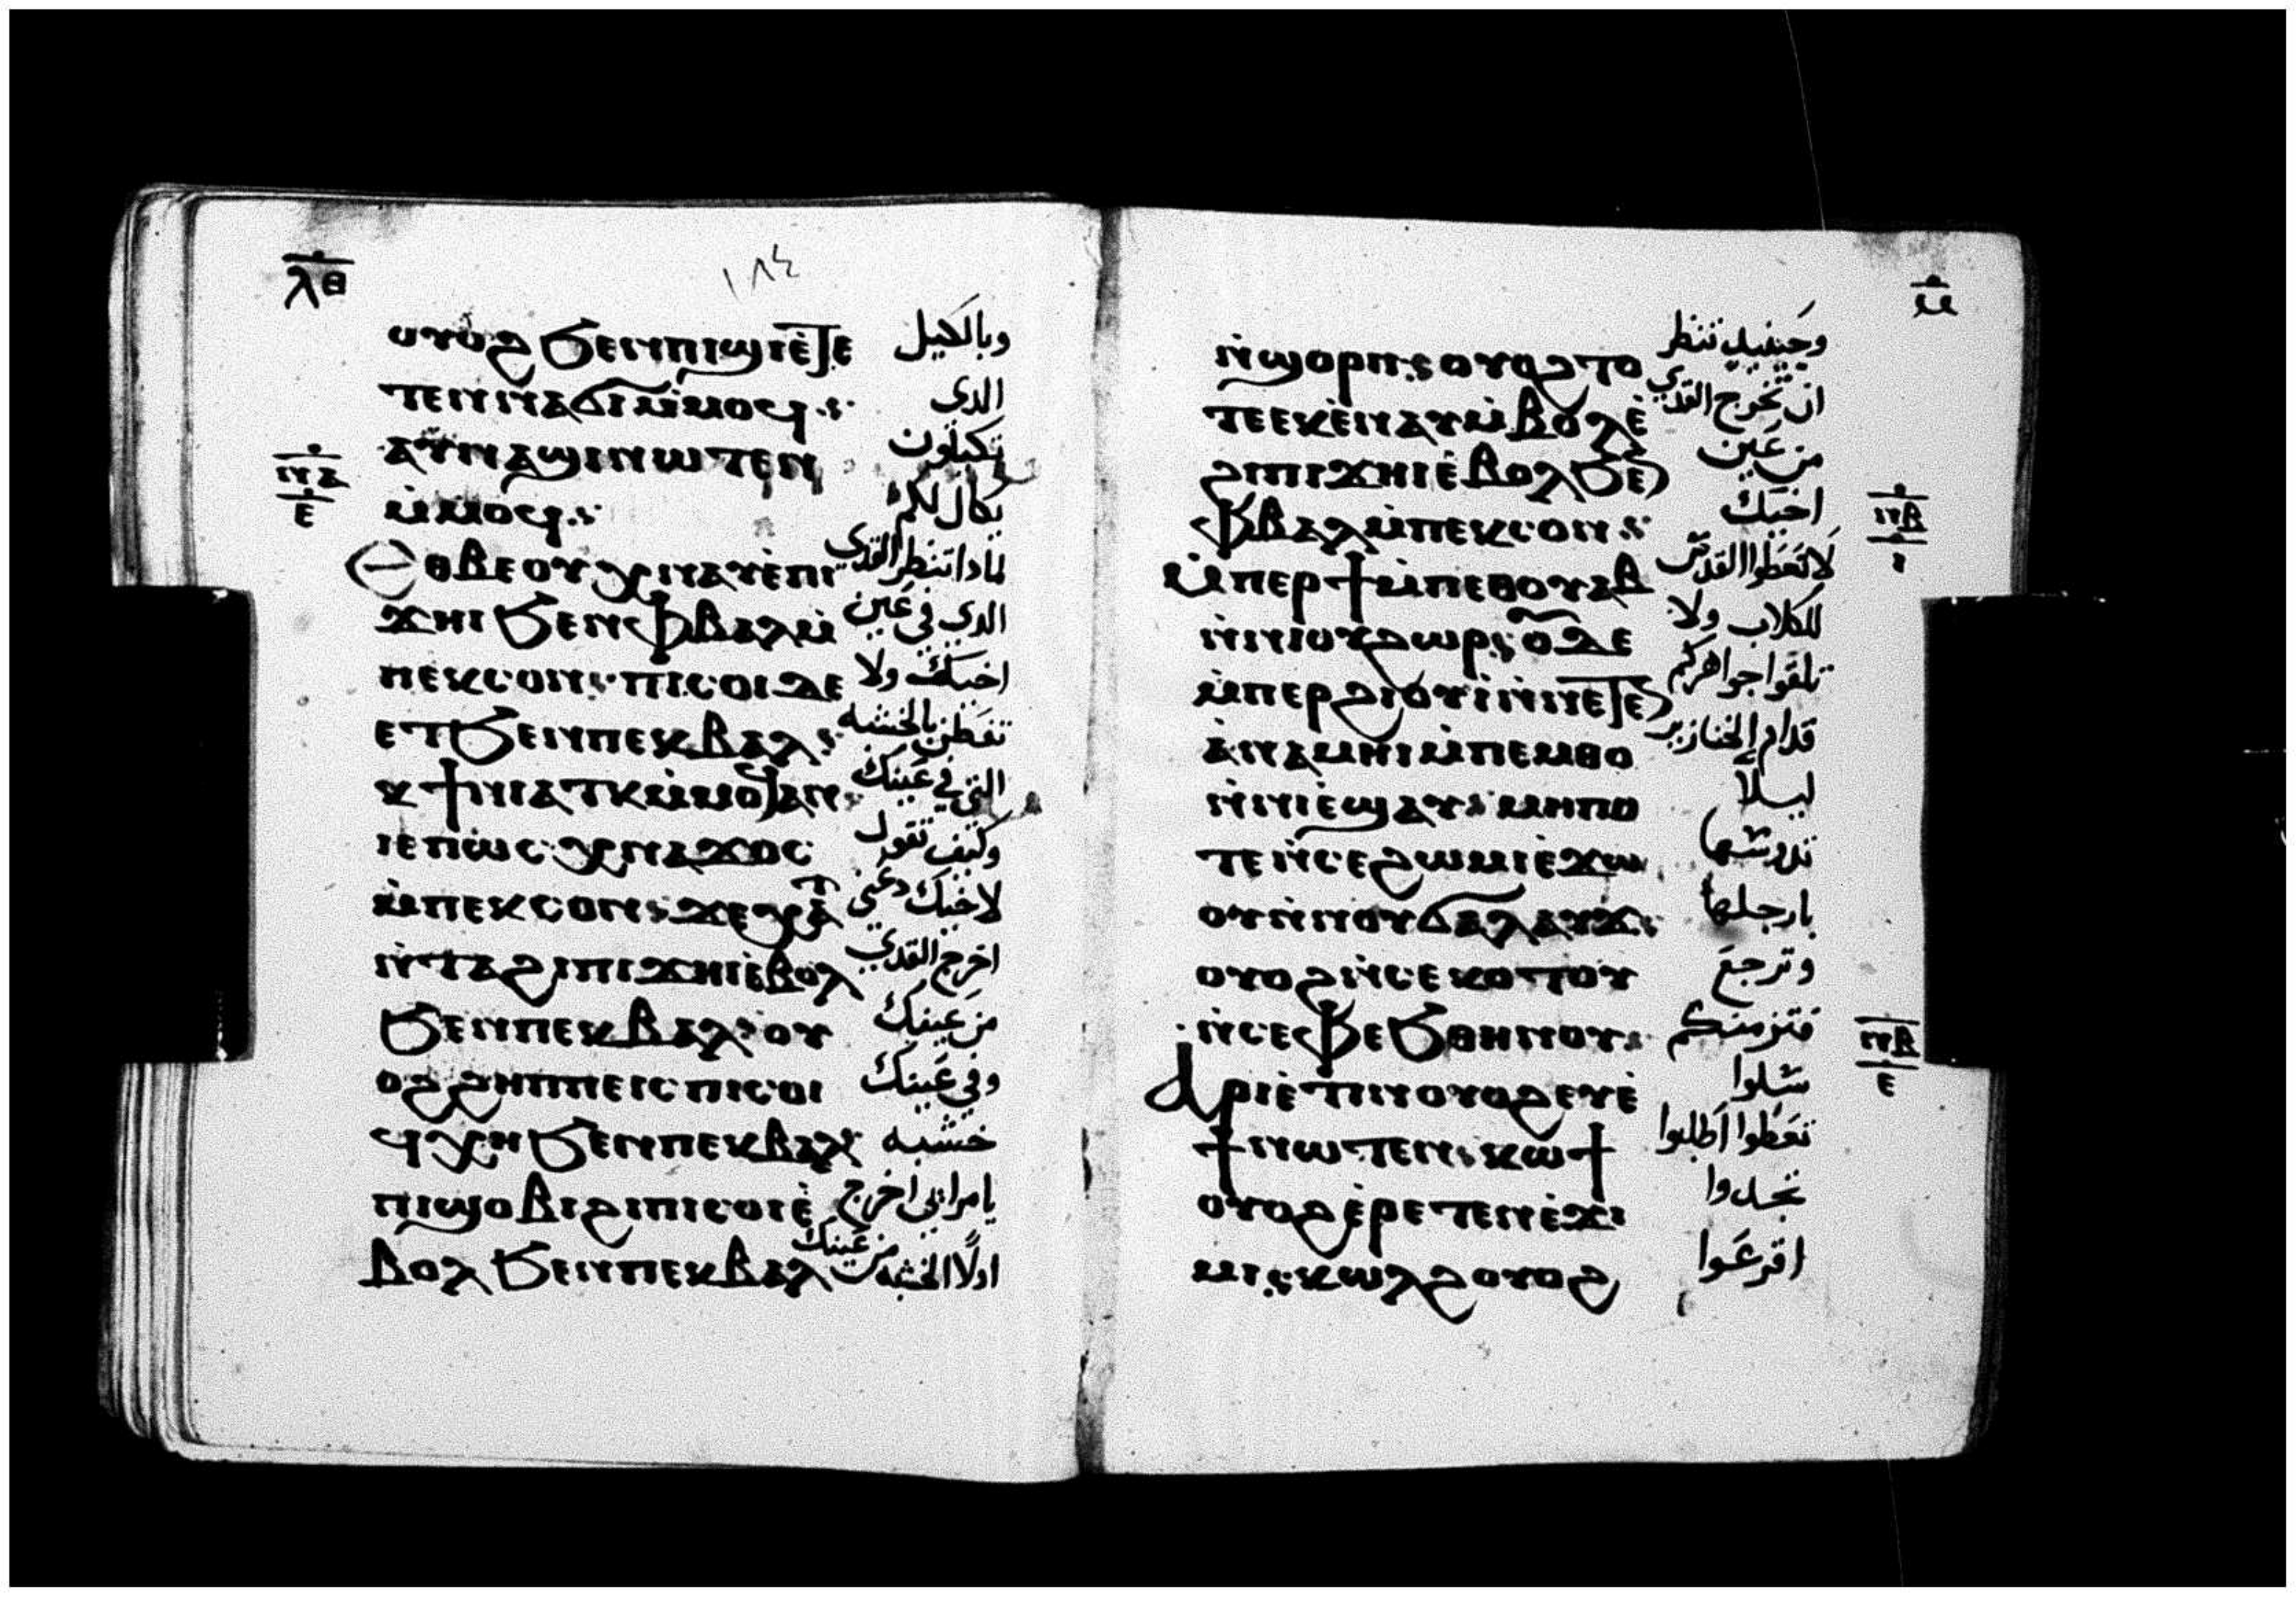 ⲗ̅ⲑ̅
١٨٤
ⲟⲩⲟϩ ϧⲉⲛⲡⲓϣⲓⲉ̀ⲧⲉ وبالكيل
ⲧⲉⲛⲛⲁϭⲓⲙ̀ⲙⲟϥ الدى
ⲁⲩⲛⲁϣⲓⲛⲱⲧⲉⲛ تكيلون
ⲙ̀ⲙⲟϥ يكال لكم
ⲛ̅ⲁ̅
ⲉ̅
ⲉⲑⲃⲉⲟⲩ ⲭⲛⲁⲩⲉ̀ⲡⲓ لمادا تنظر القدي
ϫⲏⲓ ϧⲉⲛⲫⲃⲁⲗⲙ̀ الدى في عين
ⲡⲉⲕⲥⲟⲛ ⲡⲓⲥⲟⲓ ⲇⲉ اخيك ولا
ⲉⲧϧⲉⲛⲡⲉⲕⲃⲁⲗ تفطن بالخشبه
ⲕϯⲛⲓⲁⲧⲕⲙ̀ⲙⲟϥⲁⲛ التى في عينك
ⲓⲉⲡⲱⲥ ⲭⲛⲁϫⲟⲥ وكيف تقول
ⲙ̀ⲡⲉⲕⲥⲟⲛ ϫⲉⲭⲁⲧ لاخيك دعني
ⲛ̀ⲧⲁϩⲓⲡⲓϫⲏⲓⲉ̀ⲃⲟⲗ اخرج القدي
ϧⲉⲛⲡⲉⲕⲃⲁⲗ ⲟⲩ من عينك
ⲟϩ ϩⲏⲡⲡⲉⲓⲥ ⲡⲓⲥⲟⲓ وفي عينك
ϥⲭⲏ ϧⲉⲛⲡⲉⲕⲃⲁⲗ خشبه
ⲡⲓϣⲟⲃⲓ ϩⲓⲡⲓⲥⲟⲓⲉ̀ يامرائي اخرج
ⲃⲟⲗ ϧⲉⲛⲡⲉⲕⲃⲁⲗ اولًا الخشبه من عينك
ⲙ̅
ⲛ̀ϣⲟⲣⲡ ⲟⲩⲟϩ ⲧⲟ وحينيد تنظر
ⲧⲉ ⲉⲕⲉ̀ⲛⲁⲩ ⲙ̀ⲃⲟⲗⲉ̀ ان تخرج القدي
ϩⲓⲡⲓϫⲏⲓⲉ̀ⲃⲟⲗ ϧⲉⲛ من عين
ⲫⲃⲁⲗⲙ̀ⲡⲉⲕⲥⲟⲛ اخيك
ⲛ̅ⲃ̅
ⲓ̅
ⲙ̀ⲡⲉⲣϯⲙ̀ⲡⲉⲑⲟⲩⲁⲃ لا تعطوا القدس
ⲛ̀ⲛⲓⲟⲩϩⲱⲣ ⲟⲩⲇⲉ للكلاب ولا
ⲙ̀ⲡⲉⲣϩⲓⲟⲩⲓ ⲛ̀ⲛⲉⲧⲉⲛ تلقوا جواهركم
ⲁ̀ⲛⲁⲙⲏⲓ ⲙ̀ⲡⲉⲙⲑⲟ قدام الخنازير
ⲛ̀ⲛⲓⲉ̀ϣⲁⲩ ⲙⲏⲡⲟ ليلا
ⲧⲉ ⲛ̀ⲥⲉϩⲱⲙⲓ ⲉ̀ϫⲱ تدوسها
ⲟⲩ ⲛ̀ⲛⲟⲩϭⲁⲗⲁⲩϫ بارجلها
ⲟⲩⲟϩ ⲛ̀ⲥⲉⲕⲟⲧⲟⲩ وترجع
ⲛ̀ⲥⲉⲫⲉϧ ⲑⲏⲛⲟⲩ فتزمنكم
ⲛ̅ⲃ̅
ⲉ̅
ⲁⲣⲓⲉ̀ⲧⲓⲛ ⲟⲩⲟϩ ⲉⲩⲉ̀ سلوا
ϯⲛⲱⲧⲉⲛ ⲕⲱϯ تعطوا اطلبوا
ⲟⲩⲟϩ ⲉ̀ⲣⲉⲧⲉⲛⲉ̀ϫⲓ تجدوا
ⲙⲓ ⲕⲱⲗϩ ⲟⲩⲟϩ اقرعوا